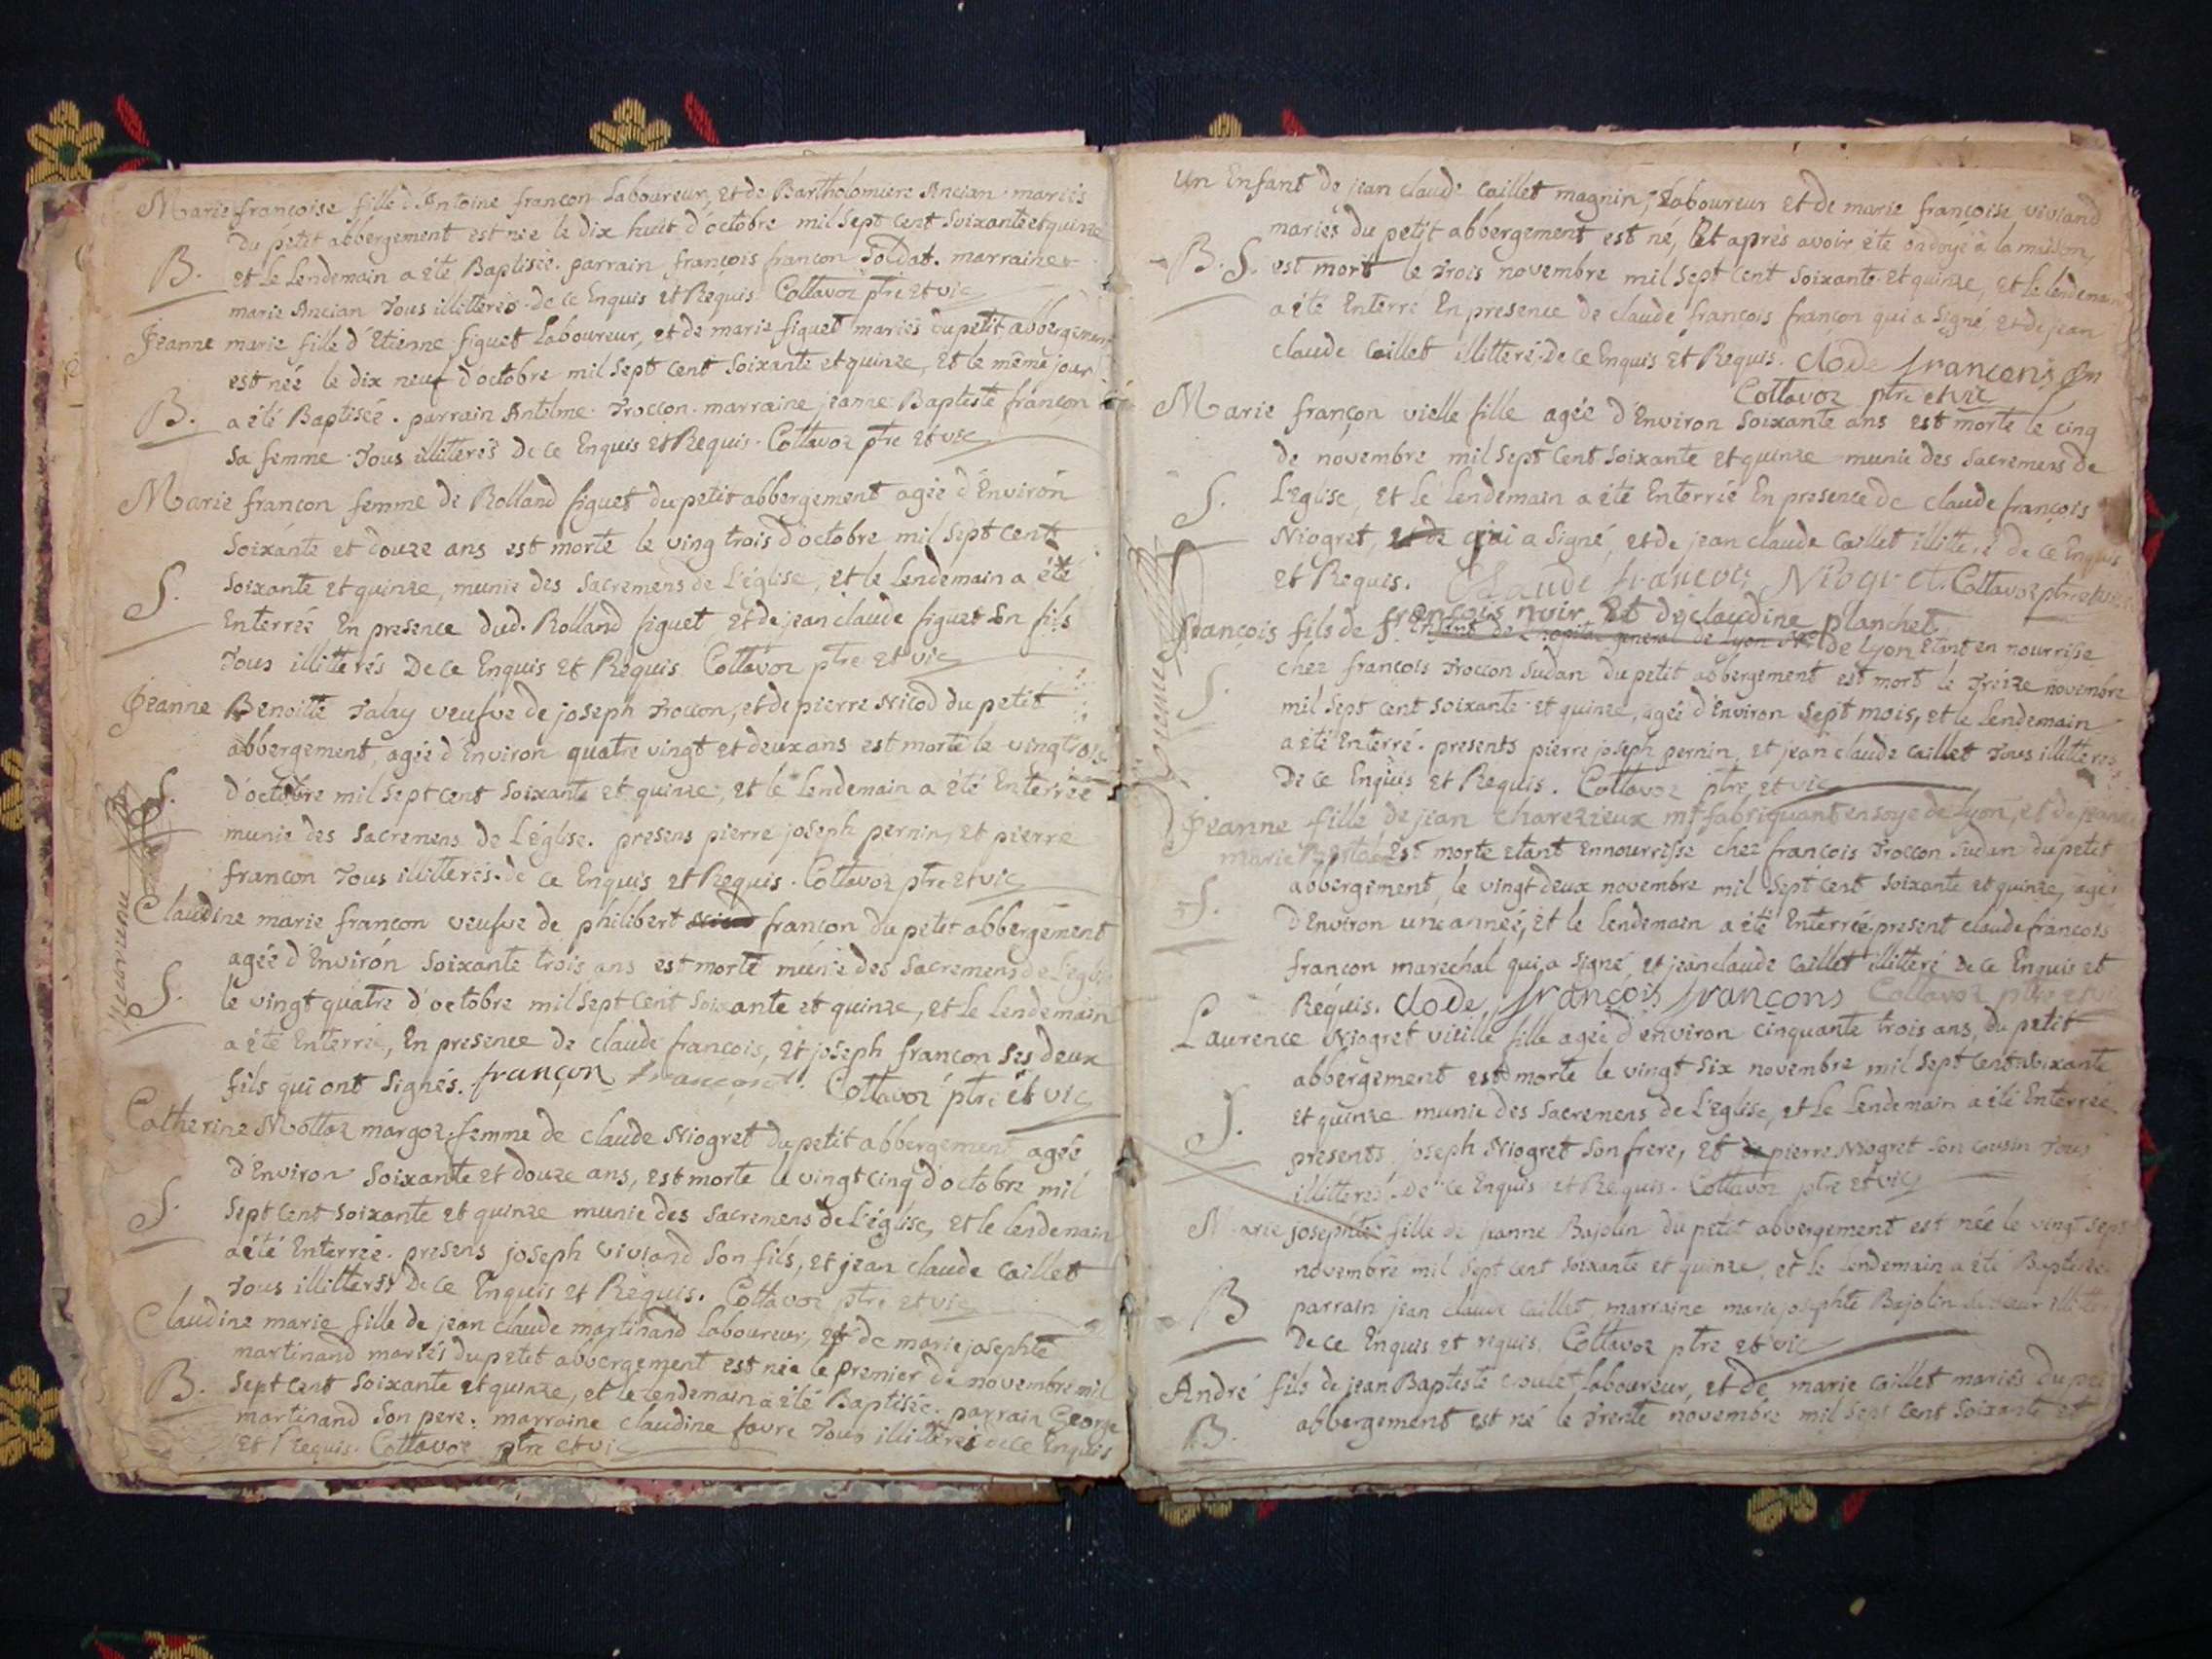 Marie françoise fille d'Antoine françon Laboureur, et de Bartholomiere Ancian mariés
du petit abbergement est née le dix huit d'octobre mil sept cent soixante et quinze
B. et le lendemain a été Baptisée. parrain françois françon soldat. marraine
marie Ancian tous illitterés de ce Enquis et Requis. Collavoz ptre et vic
Jeanne marie fille d'Etienne figuet Laboureur, et de marie figuet mariés du petit abbergement
est née le dix neuf d'octobre mil sept cent soixante et quinze, et le même jour
B. a été Baptisée. parrain Antelme Troccon. marraine jeanne Baptiste françon
sa femme tous illitterés de ce Enquis et Requis. Collavoz ptre et vic
Marie françon femme de Rolland figuet du petit abbergement agée d'Environ
soixante et douze ans est morte le ving trois d'octobre mil sept cent
S. soixante et quinze, munie des sacremens de L'église, et le lendemain a été
Enterrée En presence dud. Rolland figuet, et de jean claude figuet son fils
tous illitterés de ce Enquis et Requis Collavoz ptre et vic
Jeanne Benoitte Talay veufve de joseph Troccon, et de pierre Nicod du petit
abbergement, agée d'Environ quatre vingt et deux ans est morte le vingt trois
S. d'octobre mil sept cent soixante et quinze, et le lendemain a été Enterrée
munie des sacremens de L'église. presens pierre joseph pernin, et pierre
françon tous illitterés de ce Enquis et Requis. Collavoz ptre et vic
Claudine marie françon veufve de philibert françon du petit abbergement
agée d'Environ soixante trois ans est morte munie des sacremens de L'eglise
S. le vingt quatre d'octobre mil sept cent soixante et quinze, et le lendemain
a été Enterrée, En presence de claude françois, et joseph françon ses deux
fils qui ont signés. françon Collavoz ptre et vic
Catherine Mottaz margoz, femme de claude Niogret du petit abbergement agée
d'Environ soixante et douze ans, est morte le vingt cinq d'octobre mil
S. sept cent soixante et quinze munie des sacremens de L'église, et le lendemain
a été Enterrée. presens joseph viviand son fils, et jean claude caillet
tous illitterés de ce Enquis et Requis. Collavoz ptre et vic
Claudine marie fille de jean claude martinand laboureur, et de marie josephte
martinand mariés du petit abbergement est née le premier de novembre mil
B. sept cent soixante et quinze, et le lendemain a été Baptisée. parrain George
martinand son pere. marraine claudine favre tous illitterés de ce Enquis
et Requis. Collavoz ptre et vic
un Enfant de jean claude caillet magnin, Laboureur et de marie françoise viviand
mariés du petit abbergement est né, Et après avoir été ondoyé à la maison,
B. S. est mort le trois novembre mil sept cent soixante et quinze, et le lendemain
a été Enterré En presence de claude françois françon qui a signé et de jean
claude caillet illitteré. de ce Enquis et Requis. clode
Collavoz ptre et vic
Marie françon vielle fille agée d'Environ soixante ans est morte le cinq
de novembre mil sept cent soixante et quinze munie des sacremens de
S. L'Eglise, et le lendemain a été Enterrée En presence de claude françois
Niogret, et de qui a signé, et de jean claude caillet illitteré de ce Enquis
et Requis. Claude françois Niogret. Collavoz ptre et vic
françois fils de françois noir Et de claudine planchet
de Lyon Etant en nourrisse
S. chez françois Troccon sudan du petit abbergement est mort le treize novembre
mil sept cent soixante et quinze, agée d'Environ sept mois, et le lendemain
a été Enterré. presents pierre joseph pernin, et jean claude caillet tous illitterés
De ce Enquis et Requis. Collavoz ptre et vic
Jeanne fille de jean charezieux me fabriquant en soye de Lyon, et de jeanne
marie est morte etant en nourrisse chez françois Troccon sudan du petit
S. abbergement, le vingt deux novembre mil sept cent soixante et quinze, agée
d'Environ une année, et le lendemain a été Enterrée, present claude françois
françon marechal qui a signé, et jean claude caillet illitteré de ce Enquis et
Requis. clode françois françons Collavoz ptre et vic
Laurence Niogret vieille fille agée d'environ cinquante trois ans, du petit
abbergement est morte le vingt six novembre mil sept cent soixante
S. et quinze munie des sacremens de L'Eglise, et le lendemain a été Enterrée.
presents joseph Niogret son frere, et de pierre Niogret son cousin tous
illitterés. de ce Enquis et Requis. Collavoz ptre et vic
Marie josephte fille de jeanne Bajolin du petit abbergement est née le vingt sept
novembre mil sept cent soixante et quinze, et le lendemain a été Baptisée
B parrain jean claude caillet, marraine marie josephte Bajolin sa soeur
De ce Enquis et requis. Collavoz ptre et vic
André fils de jean Baptiste laboureur, et de marie caillet mariés du
B. abbergement est né le trente novembre mil sept cent soixante et